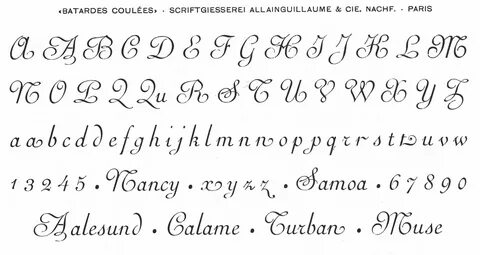 «BATARDES COULÉES» · SCRIFTGIESSEREI ALLAINGUILLAUME & CIE. NACHF. · PARIS
A A B C D E F G H I J K L M
N O P Q Qu R S T U V W X Y Z
a a b c d d e f g h i j k l m n n o p p q r r s t t u v w
1 2 3 2 4 5 · Nancy · x y z z · Samoa · 6 7 8 9 0
Aalesund · Calame · Turban · Muse